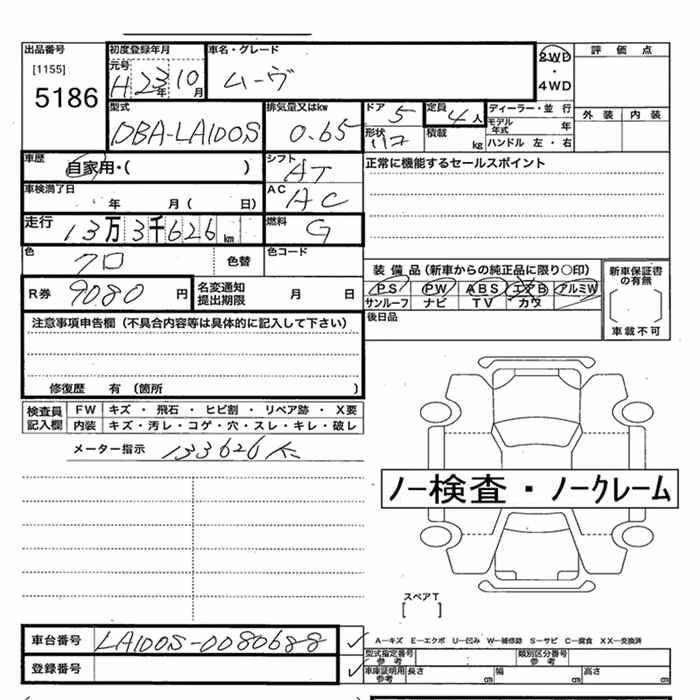 出品番号 初度登録年月 車名・グレード 2WD・4WD 評価点
[1155] 元号
5186 H 23年 10月 ムーヴ
型式 排気量又はkw ドア 5 定員 4人 ディーラー・並行 外装 内装
DBA-LA100S 0.65 形状 積載 kg モデル年式 年
ハンドル 左・右
車歴 自家用・( ) シフト AT 正常に機能するセールスポイント
車検満了日 年 月( 日) AC AC
走行 13万3千626km 燃料 G
色 クロ 色替 色コード
装備品(新車からの純正品に限り○印) 新車保証書の有無
R券 9080円 名変通知提出期限 月 日 PS PW ABS エアB アルミW
サンルーフ ナビ TV カワ
注意事項申告欄(不具合内容等は具体的に記入して下さい) 後日品 車載不可
修復歴 有(箇所 )
検査員記入欄 FW キズ・飛石・ヒビ割・リペア跡・X要
内装 キズ・汚レ・コゲ・穴・スレ・キレ・破レ
メーター指示 133626K
ノー検査・ノークレーム
スペアT
[ ]
車台番号 LA100S-0080688 A-キズ E-エクボ U-凹み W-補修跡 S-サビ C-腐食 XX-交換済
登録番号 型式指定番号 参考 類別区分番号 参考
車庫証明用 参考 長さ cm 幅 cm 高さ cm